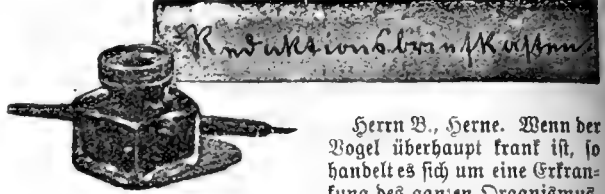 Redaktionsbriefkasten.
Herrn B., Herne. Wenn der
Vogel überhaupt krank ist, so
handelt es sich um eine Erkran-
kung des ganzen Organismus